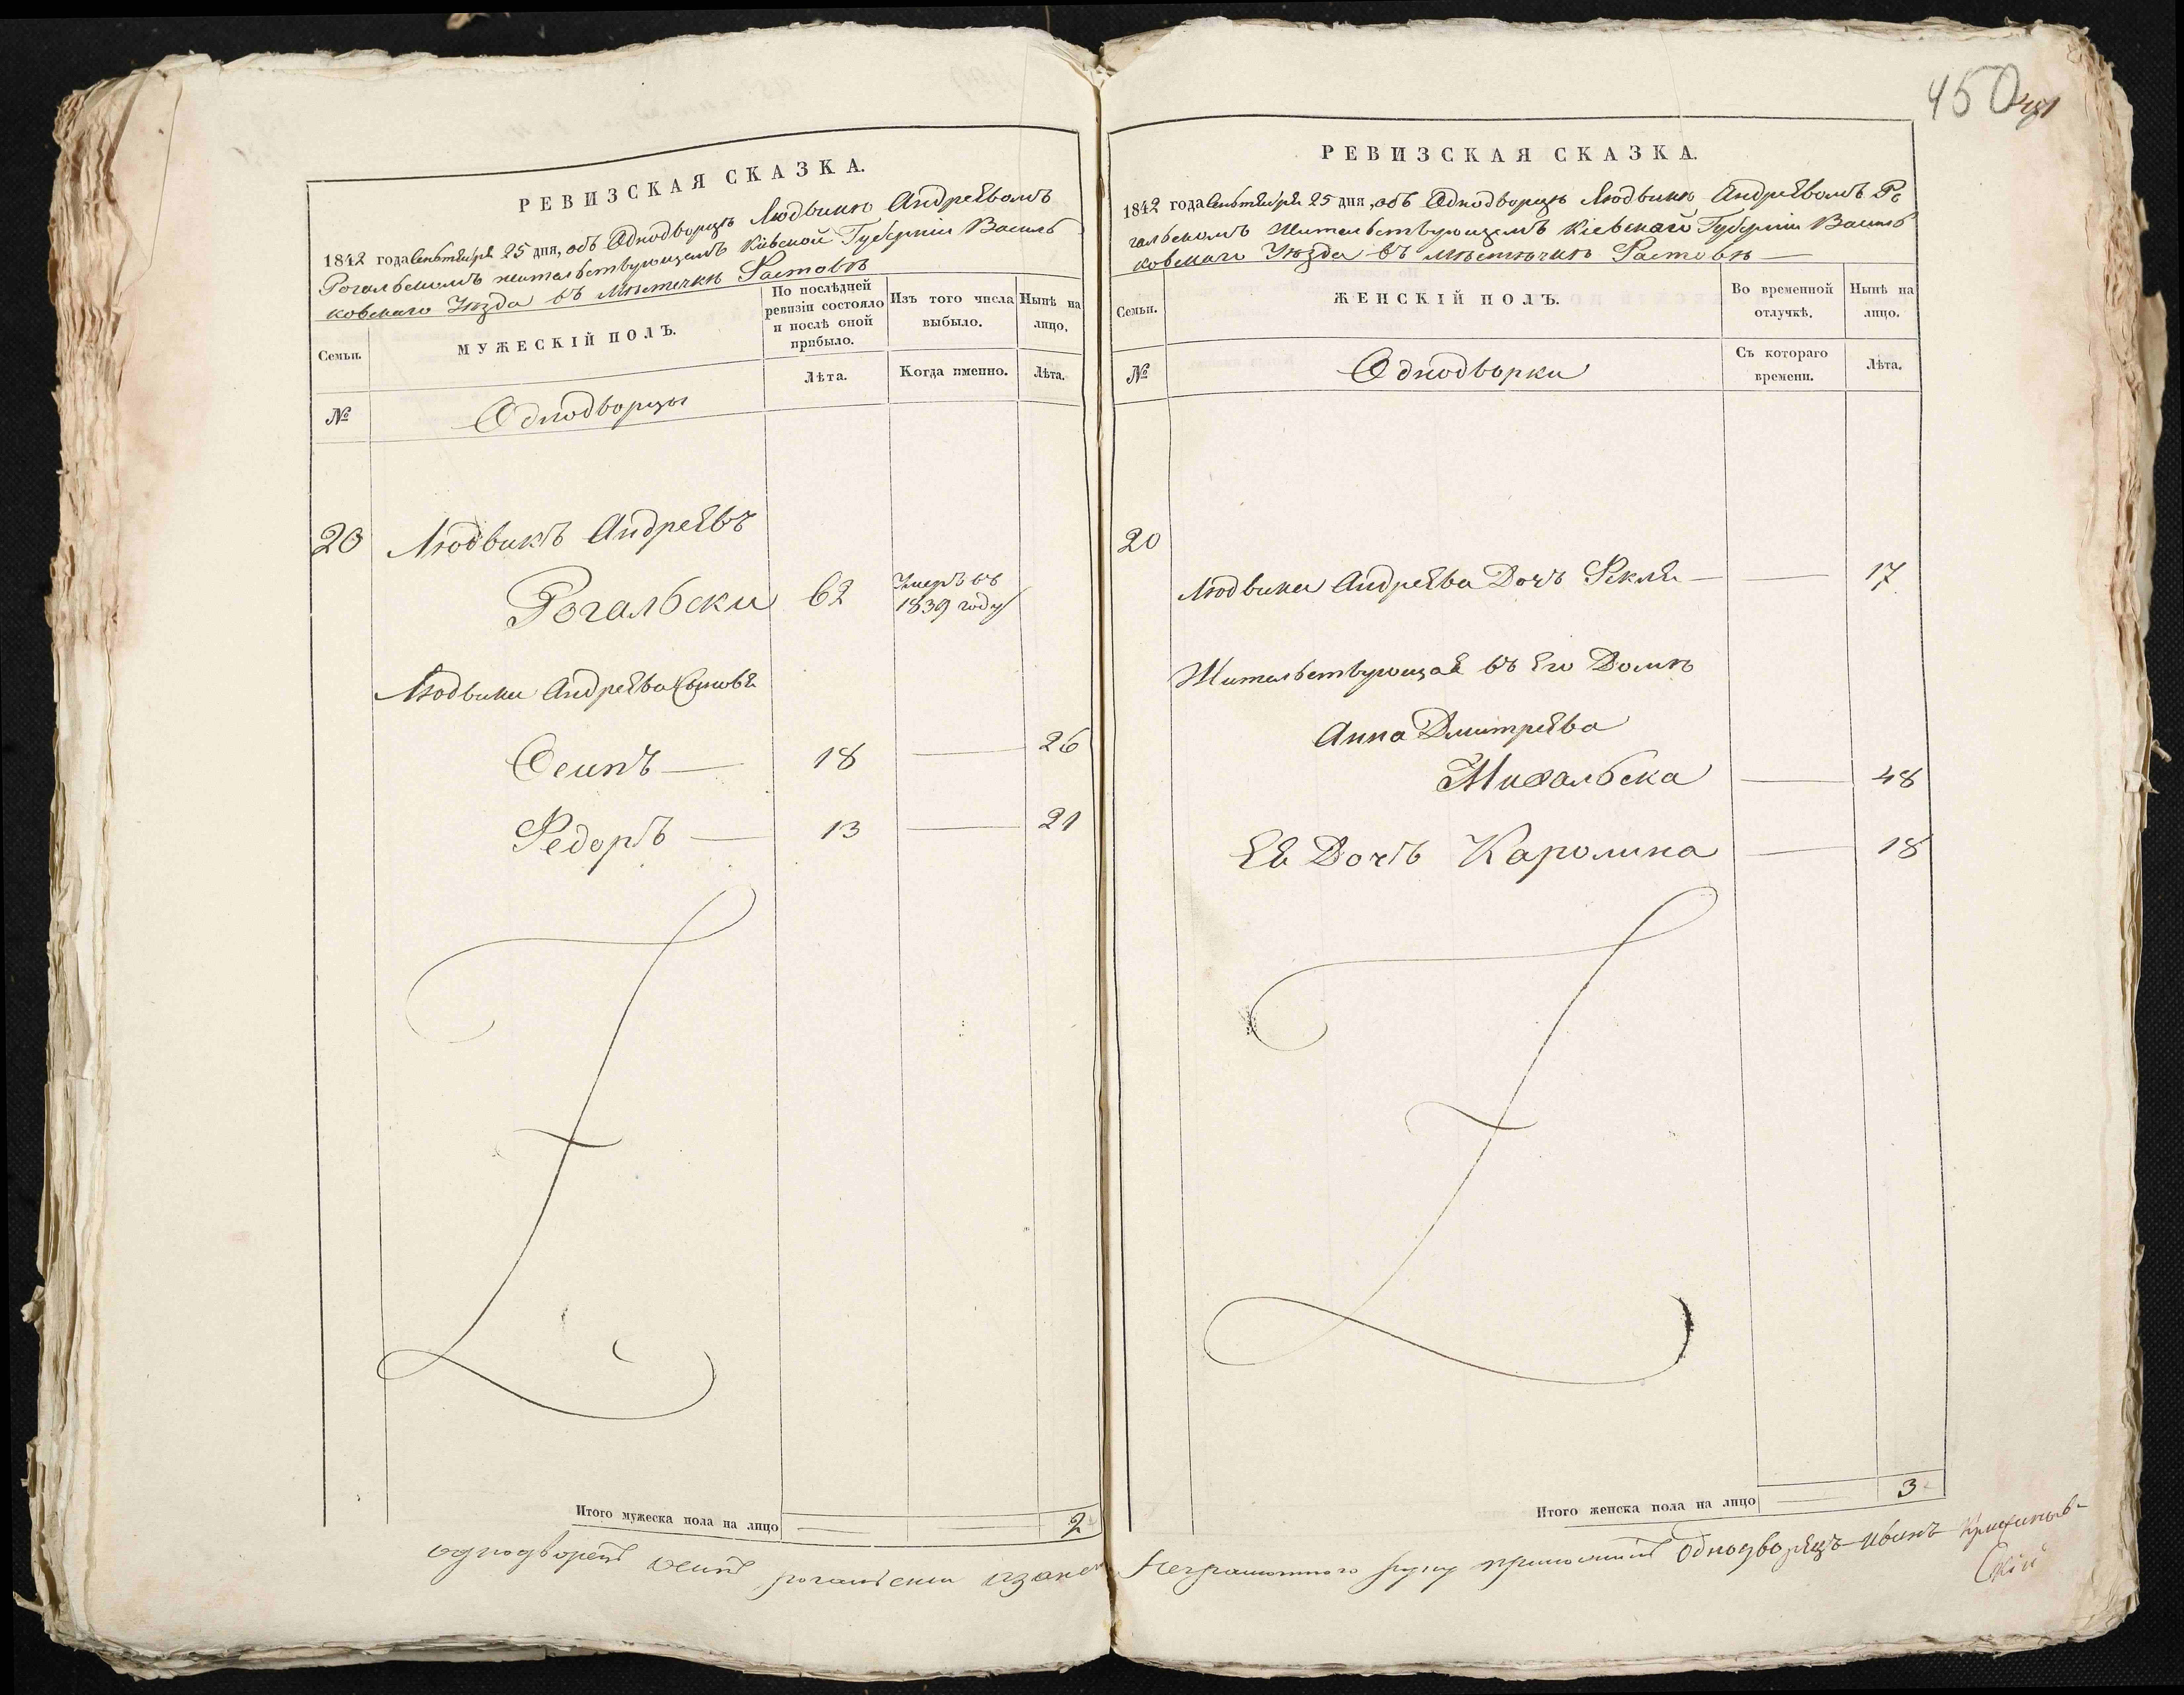 РЕВИЗСКАЯ СКАЗКА.
1842 года Сентября 25 дня, объ Однодворцѣ Людвикѣ Андреевомъ
Рогальскомъ жительствующемъ Кіевской Губерніи Василь
ковскаго Уѣзда въ мѣстечкѣ Фастовѣ
Семьи.
МУЖЕСКІЙ ПОЛЪ.
По послѣдней
ревизіи состояло
и послѣ оной
прибыло.
Изъ того числа
выбыло.
Нынѣ на
лицо.
Лѣта.
Когда именно.
Лѣта.
№
Однодворцы
20 Людвикъ Андреевъ
Рогальски 62 Умеръ въ
1839 году
Людвика Андреева Сыновя
Осипъ — 18 — 26
Федоръ — 13 — 21
Итого мужеска пола на лицо — — 2
однодворецъ осипъ рогальски
450
РЕВИЗСКАЯ СКАЗКА.
1842 года Сентября 25 дня, объ Однодворцѣ Людвикѣ Андреевомъ Ро
гальскомъ жительствующемъ Кіевскай Губерніи Василь
ковскаго Уѣзда въ мѣстѣчкѣ Фастовѣ —
Семьи.
ЖЕНСКІЙ ПОЛЪ.
Во временной
отлучкѣ.
Нынѣ на
лицо.
№
Однодворки
Съ котораго
времени.
Лѣта.
20
Людвика Андреева Дочъ Фекля — — 17
Жительствующая въ Его Домѣ
Анна Дмитреева
Михальска — 48
Ея Дочъ Каролина — 18
Итого женска пола на лицо — 3
неграмотного руку приложилъ Однодворецъ Иванъ
скій